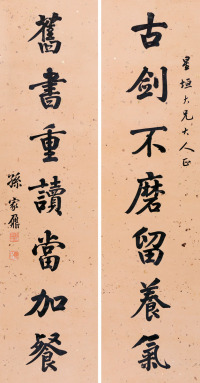 星垣大兄大人正
古剑不磨留養氣
舊書重讀當加餐
孫家鼐